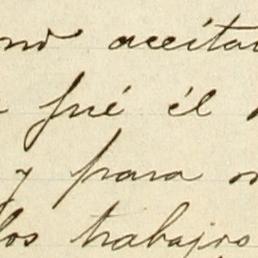 aceitar
fué él
y para
los trabajos